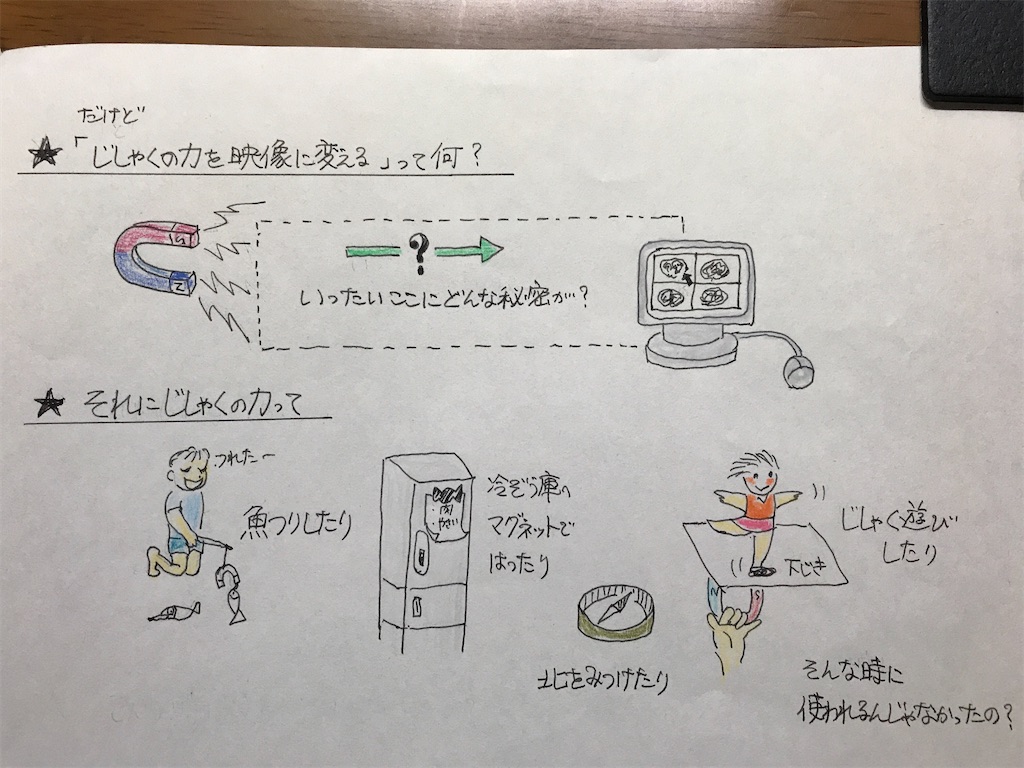 だけど
★「じしゃくの力を映像に変える」って何？
S
N
?
いったいここにどんな秘密が？
★ それにじしゃくの力って
つれたー
魚つりしたり
肉
やさい
冷ぞう庫へ
マグネットで
はったり
北をみつけたり
じしゃく遊び
したり
下じき
N S
そんな時に
使われるんじゃなかったの？